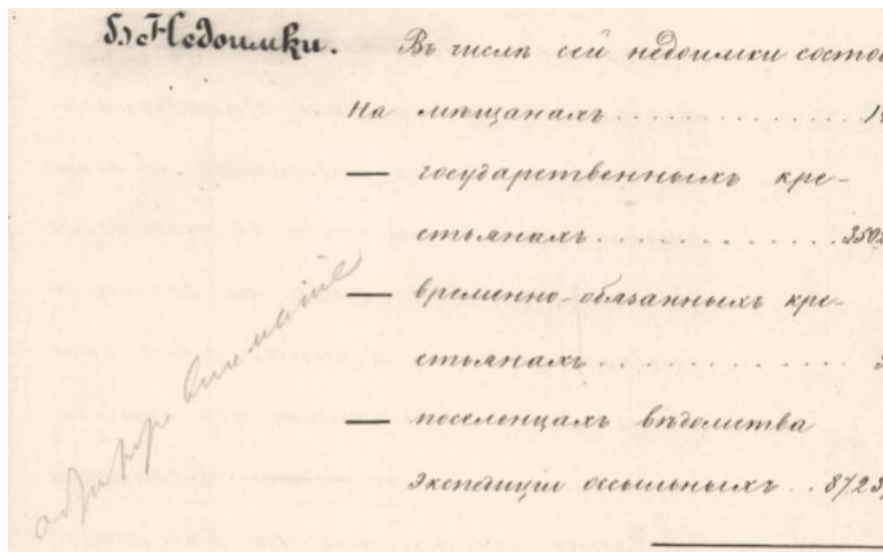 б) Недоимки.
Въ числѣ сей недоимки состо
На мѣщанахъ
— государственныхъ кре-
стьянахъ
— временно-обязанныхъ кре-
стьянахъ
— поселенцахъ вѣдомства
Экспедиціи ссыльныхъ .. 8723
вниманіе